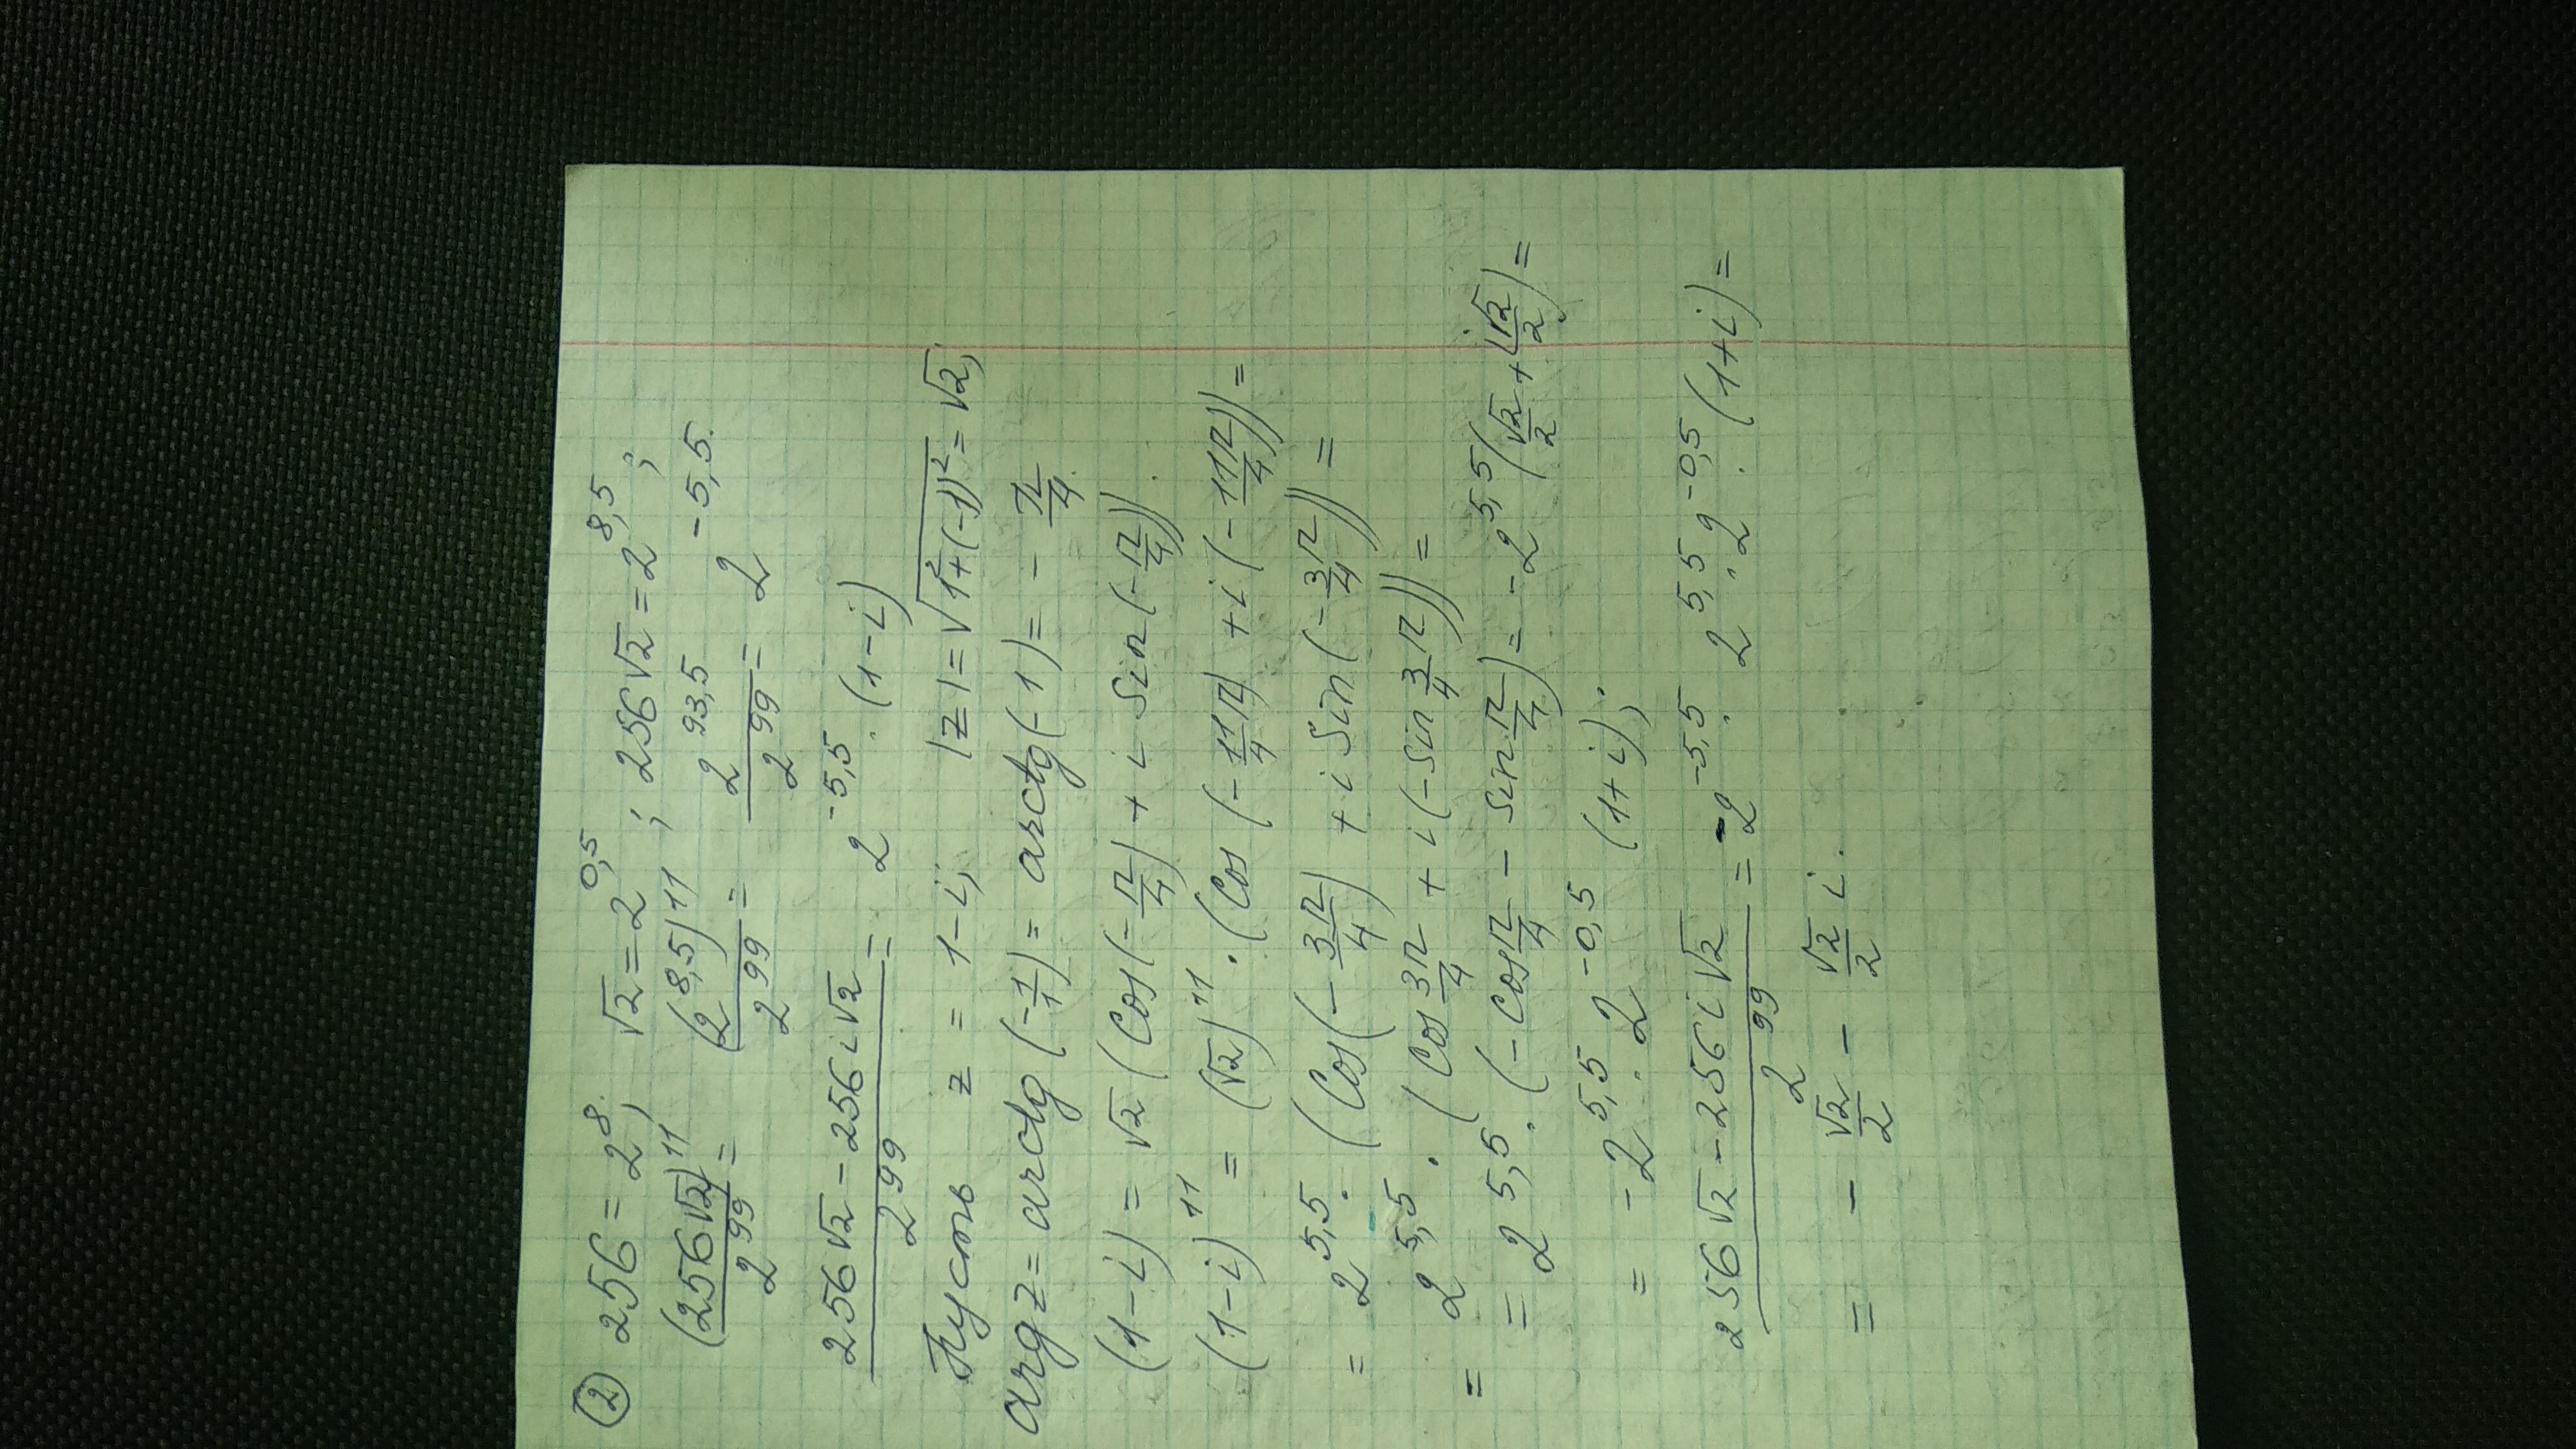 ② 256 = 2^8; √2 = 2^0,5; 256√2 = 2^8,5;
(256√2)^11 / 2^99 = (2^8,5)^11 / 2^99 = 2^93,5 / 2^99 = 2^-5,5.
(256√2 - 256i√2) / 2^99 = 2^-5,5 · (1-i)
Пусть z = 1-i; |z| = √(1² + (-1)²) = √2;
arg z = arctg(-1/1) = arctg(-1) = -π/4.
(1-i) = √2 (Cos(-π/4) + i Sin(-π/4)).
(1-i)^11 = (√2)^11 · (Cos(-11π/4) + i(-11π/4)) =
= 2^5,5 · (Cos(-3π/4) + i Sin(-3π/4)) =
= 2^5,5 · (Cos 3π/4 + i(-Sin 3/4 π)) =
= 2^5,5 · (-Cos π/4 - Sin π/4) = -2^5,5 (√2/2 + i√2/2) =
= -2^5,5 · 2^-0,5 (1+i);
(256√2 - 256i√2) / 2^99 = -2^-5,5 · 2^5,5 · 2^-0,5 · (1+i) =
= - √2/2 - √2/2 i.